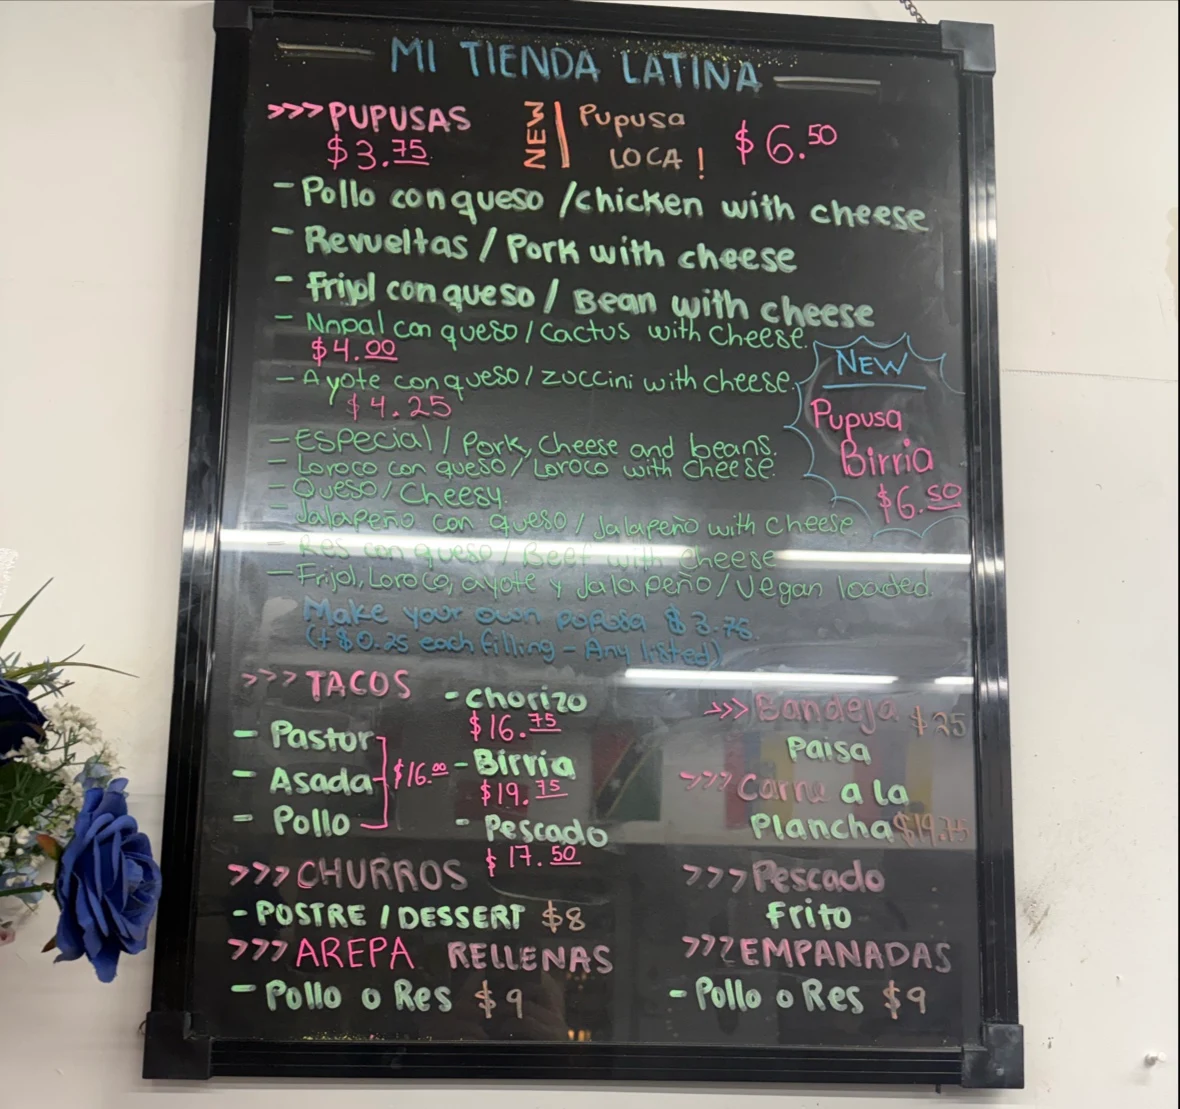 MI TIENDA LATINA
>>> PUPUSAS
$3.75
NEW
Pupusa
LOCA!
$6.50
- Pollo con queso / chicken with cheese
- Revueltas / Pork with cheese
- Frijol con queso / Bean with cheese
- Nopal con queso / Cactus with cheese.
$4.00
- Ayote con queso / zuccini with cheese.
$4.25
NEW
Pupusa
Birria
$6.50
- Especial / Pork, cheese and beans.
- Loroco con queso / Loroco with cheese.
- Queso / Cheesy.
- Jalapeño con queso / Jalapeño with cheese.
- Res con queso / Beef with cheese
- Frijol, Loroco, ayote y Jalapeño / Vegan loaded.
Make your own pupusa $3.75.
(+$0.25 each filling - Any listed)
>>> TACOS
- Pastor
- Asada
- Pollo
$16.00
- Chorizo
$16.75
- Birria
$19.75
- Pescado
$17.50
>>> Bandeja $25
Paisa
>>> Carne a la
Plancha $19.75
>>> CHURROS
- POSTRE / DESSERT $8
>>> Pescado
Frito
>>> AREPA RELLENAS
- Pollo o Res $9
>>> EMPANADAS
- Pollo o Res $9